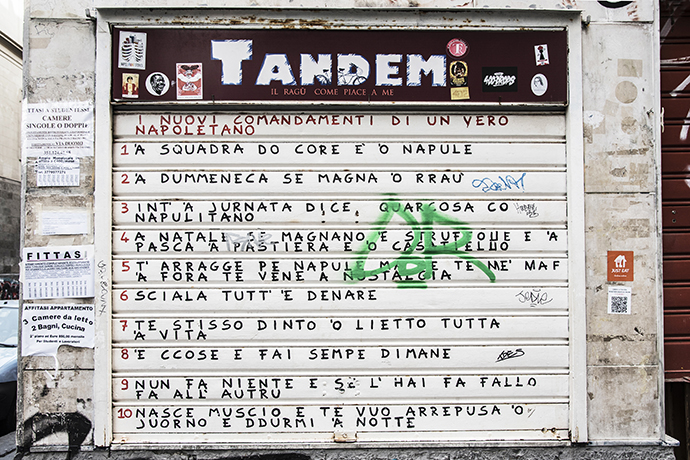 TANDEM
IL RAGÙ COME PIACE A ME
I NUOVI COMANDAMENTI DI UN VERO
NAPOLETANO
1 'A SQUADRA DO CORE E' O NAPULE
2 'A DUMMENECA SE MAGNA 'O RRAU'
3 INT' A JURNATA DICE QUARCOSA CO
NAPULITANO
4 A NATALE SE MAGNANO E STRUFFOLE E 'A
PASCA A PASTIERA E O
5 T' ARRAGGE DE NAPULE MA TE NE'
A FORA TE VENE A NOSTALGIA
6 SCIALA TUTT' 'E DENARE
7 TE STISSO DINTO 'O LIETTO TUTTA
'A VITA
8 'E CCOSE E FAI SEMPE DIMANE
9 NUN FA NIENTE E SE L' HAI FA FALLO
FA ALL' AUTRU
10 NASCE MUSCIO E TE VUO ARREPUSA 'O
JUORNO E DDURMI 'A NOTTE
CAMERE
SINGOLE O DOPPIE
VIA DUOMO
FITTASI
AFFITASI APPARTAMENTO
3 Camere da letto
2 Bagni, Cucina
JUST EAT